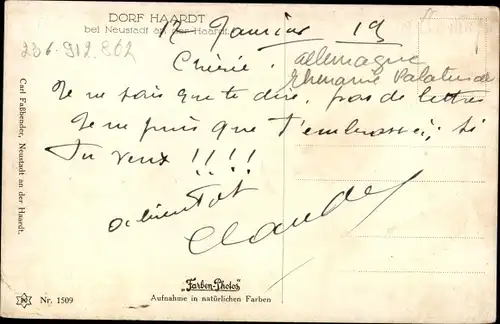 DORF HAARDT
bei Neustadt an der Haardt.
12 Janvier 19
236.912.802
Chérie. Allemagne
Rhénanie Palatinat
Je ne sais que te dire, pas de lettres
Je ne puis que t'embrasser, si
Tu veux !!!!
a bientot
Claude
Carl Faßbender, Neustadt an der Haardt.
"Farben-Photos"
Aufnahme in natürlichen Farben
Nr. 1509